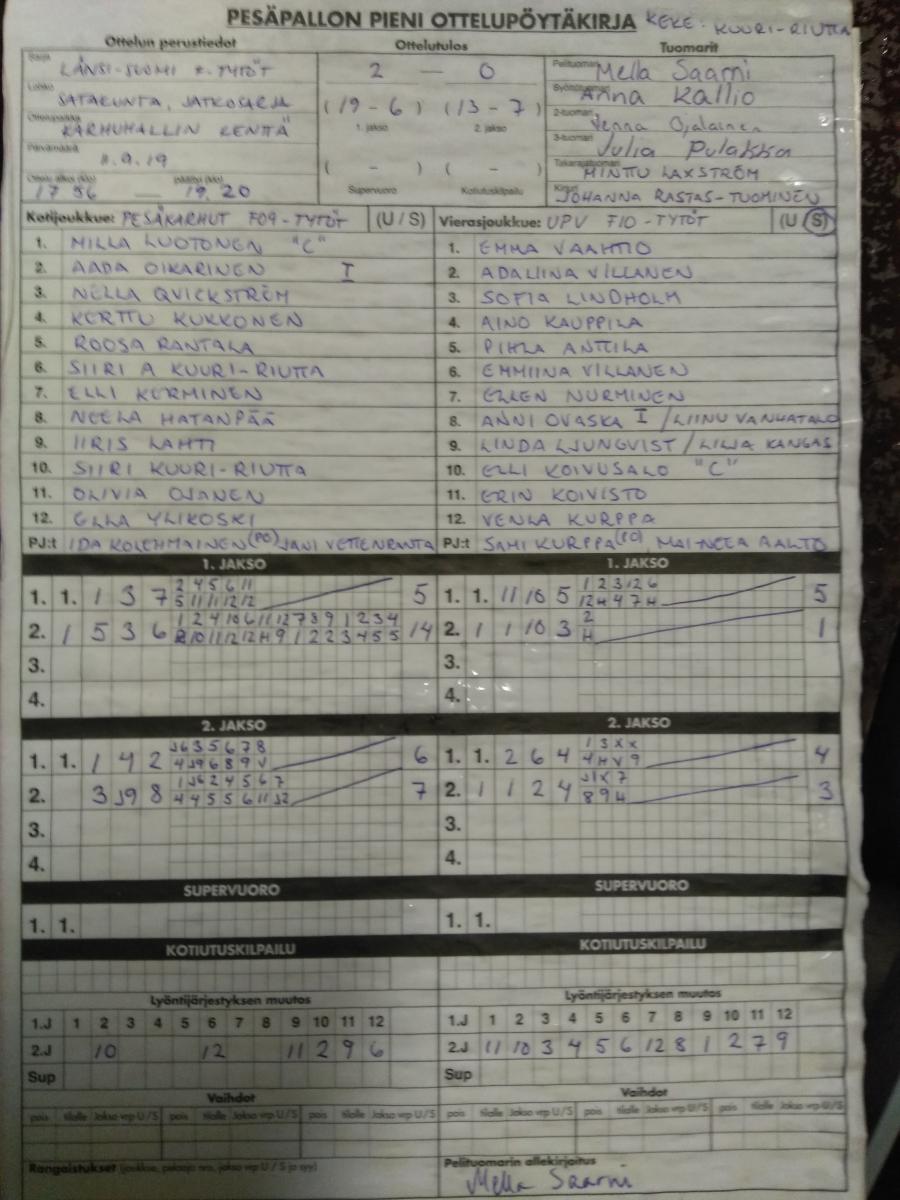 PESÄPALLON PIENI OTTELUPÖYTÄKIRJA KEKE: KUURI-RIUTTA
Ottelun perustiedot Ottelutulos Tuomarit
Sarja LÄNSI-SUOMI F-TYTÖT 2 — 0 Pelituomari Mella Saarni
Lohko SATAKUNTA, JATKOSARJA (19 - 6) (13 - 7) Syöttötuomari Anna Kallio
Ottelupaikka KARHUHALLIN KENTTÄ 1. jakso 2. jakso 2-tuomari Venna Ojalainen
Päivämäärä 11.9.19 3-tuomari Julia Pulakka
( - ) ( - ) Takarajatuomari MINTTU LAXSTRÖM
Ottelu alkoi (klo) 17 56 — päättyi (klo) 19.20 Supervuoro Kotiutuskilpailu Kirjuri JOHANNA RASTAS-TUOMINEN
Kotijoukkue: PESÄKARHUT F09-TYTÖT (U / S) Vierasjoukkue: UPV F10-TYTÖT (U / S)
1. MILLA LUOTONEN "C" 1. EMMA VAAHTIO
2. AADA OIKARINEN I 2. ADALIINA VILLANEN
3. NELLA QVICKSTRÖM 3. SOFIA LINDHOLM
4. KERTTU KUKKONEN 4. AINO KAUPPILA
5. ROOSA RANTALA 5. PIHLA ANTTILA
6. SIIRI A KUURI-RIUTTA 6. EMMIINA VILLANEN
7. ELLI KERMINEN 7. ELLEN NURMINEN
8. NEELA HATANPÄÄ 8. ANNI OVASKA I / LIINU VANHATALO
9. IIRIS LAHTI 9. LINDA LJUNGVIST / LILJA KANGAS
10. SIIRI KUURI-RIUTTA 10. ELLI KOIVUSALO "C"
11. OLIVIA OJANEN 11. ERIN KOIVISTO
12. ELLA YLIKOSKI 12. VENLA KURPPA
PJ:t IDA KOLEHMAINEN (PO) JANI VETTENRANTA PJ:t SAMI KURPPA (PO), MAI-NEEA AALTO
1. JAKSO 1. JAKSO
2 4 5 6 11 1 2 3 12 6
1. 1. 1 3 7 5 11 11 12 12 5 1. 1. 11 10 5 12 H 4 7 H 5
1 2 4 10 6 11 12 7 8 9 1 2 3 4 2
2. 1 5 3 6 2 10 11 12 12 H 9 1 2 2 3 4 5 5 14 2. 1 1 10 3 H 1
3. 3.
4. 4.
2. JAKSO 2. JAKSO
J6 3 5 6 7 8 1 3 X X
1. 1. 1 4 2 4 J9 6 8 9 V 6 1. 1. 2 6 4 4 H V 9 4
1 J6 2 4 5 6 7 J1 X 7
2. 3 J9 8 4 4 5 5 6 11 J2 7 2. 1 1 2 4 8 9 H 3
3. 3.
4. 4.
SUPERVUORO SUPERVUORO
1. 1. 1. 1.
KOTIUTUSKILPAILU KOTIUTUSKILPAILU
Lyöntijärjestyksen muutos Lyöntijärjestyksen muutos
1.J 1 2 3 4 5 6 7 8 9 10 11 12 1.J 1 2 3 4 5 6 7 8 9 10 11 12
2.J 10 12 11 2 9 6 2.J 11 10 3 4 5 6 12 8 1 2 7 9
Sup Sup
Vaihdot Vaihdot
pois tilalle Jakso vrp U/S pois tilalle Jakso vrp U/S pois tilalle Jakso vrp U/S pois tilalle Jakso vrp U/S pois tilalle Jakso vrp U/S pois tilalle Jakso vrp U/S
Rangaistukset (joukkue, pelaaja nro, jakso vrp U / S ja syy) Pelituomarin allekirjoitus
Mella Saarni